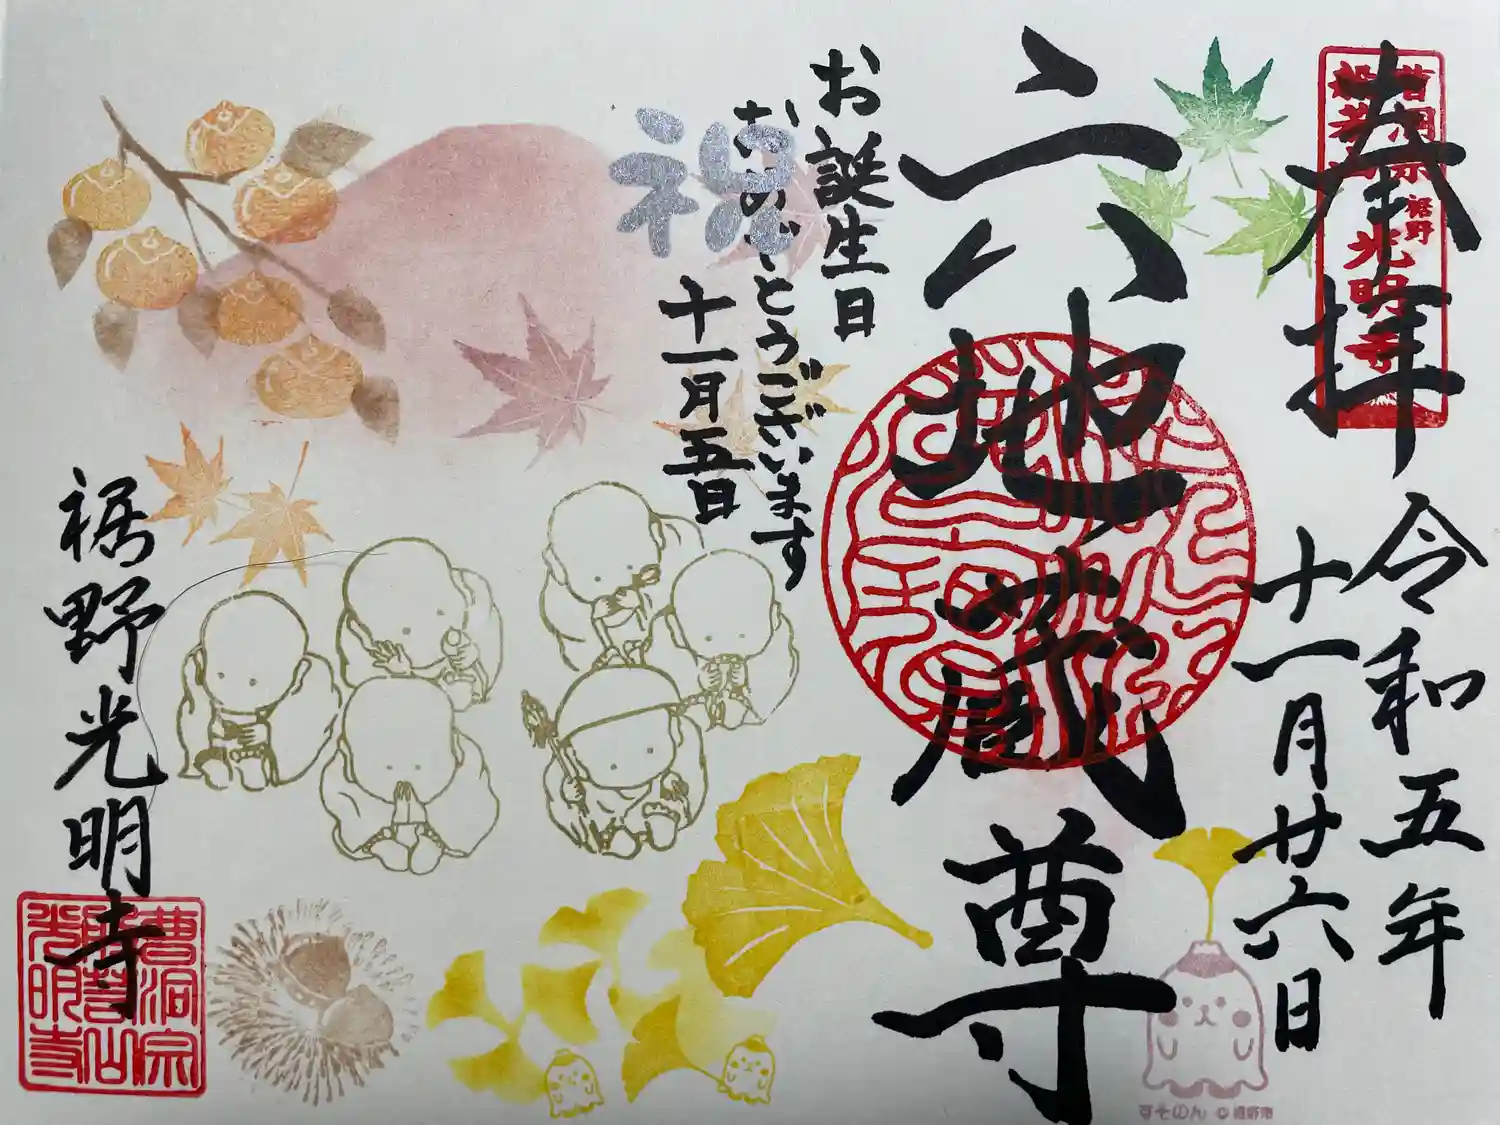 奉拝
曹洞宗
裾野 光明寺
令和五年
十一月廿六日
六地蔵尊
お誕生日
おめでとうございます
十一月五日
祝
裾野光明寺
曹洞宗
光明寺
すそのん © 裾野市